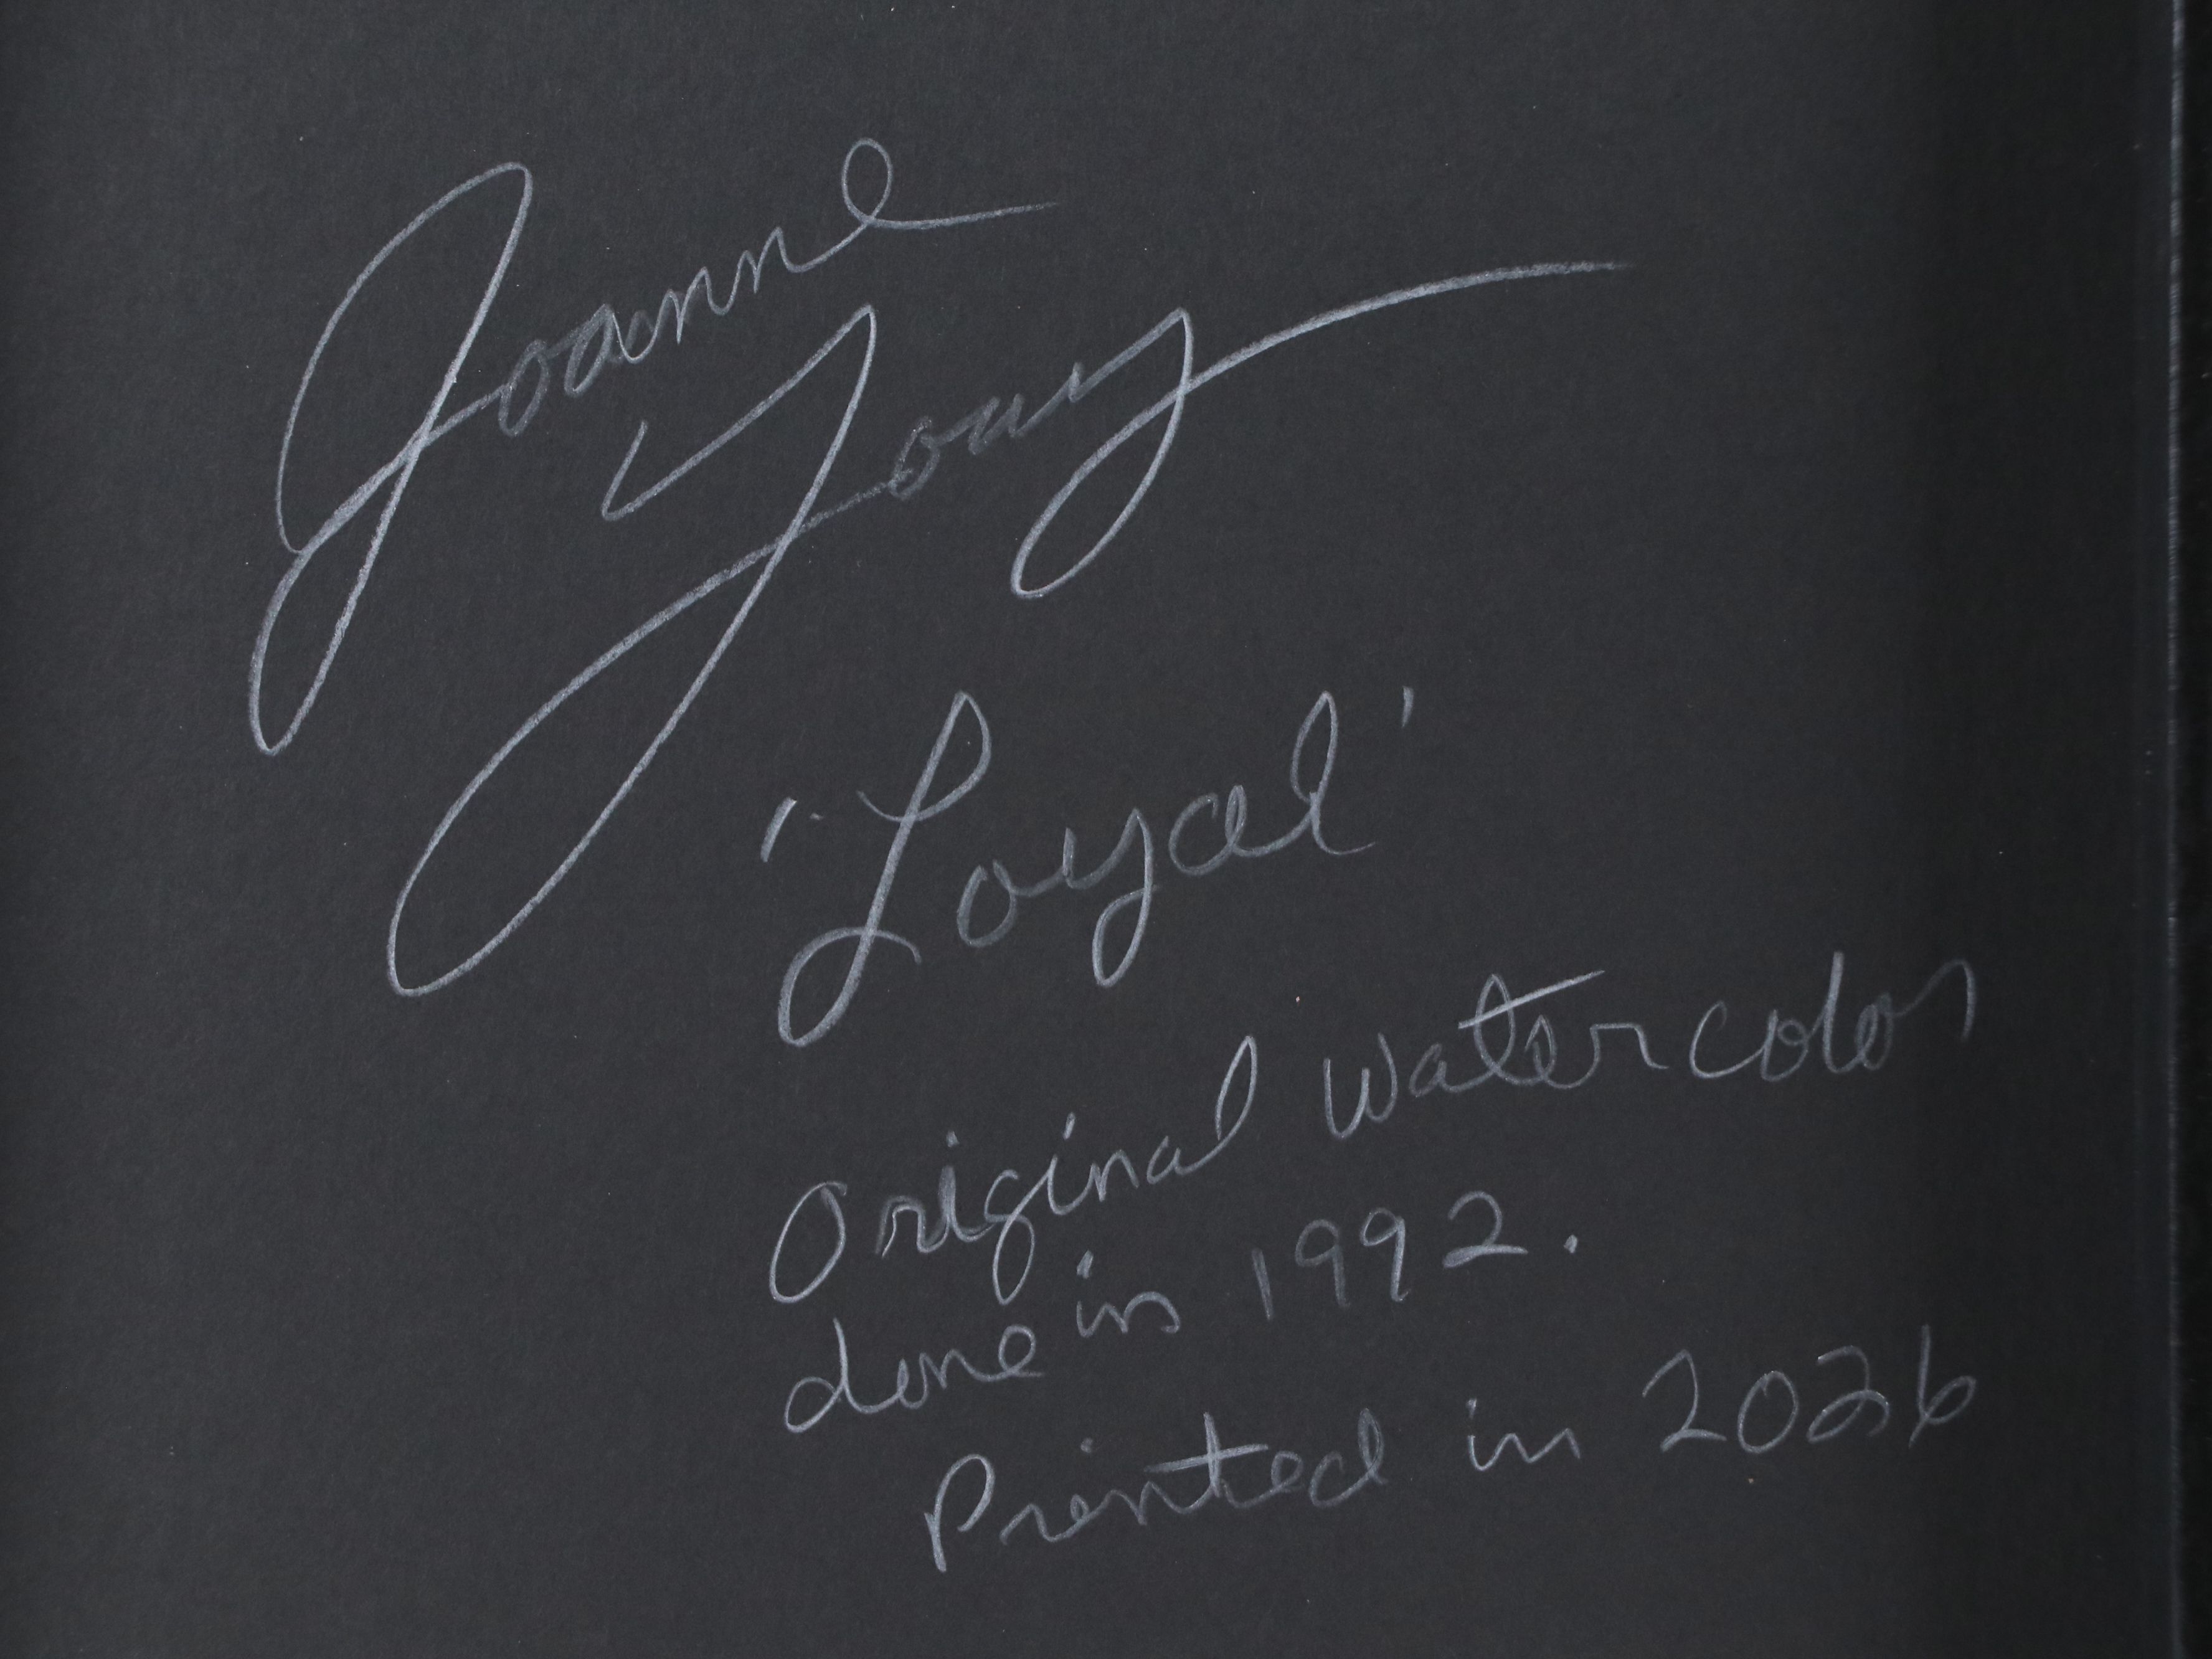 Joanne
'Loyal'
Original Watercolor
done in 1992.
Printed in 2026